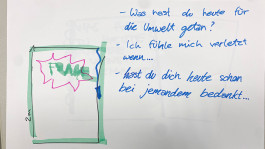 - Was hast du heute für
die Umwelt getan?
- Ich fühle mich verletzt
wenn...
- hast du dich heute schon
bei jemandem bedankt...
FRAGE
2m